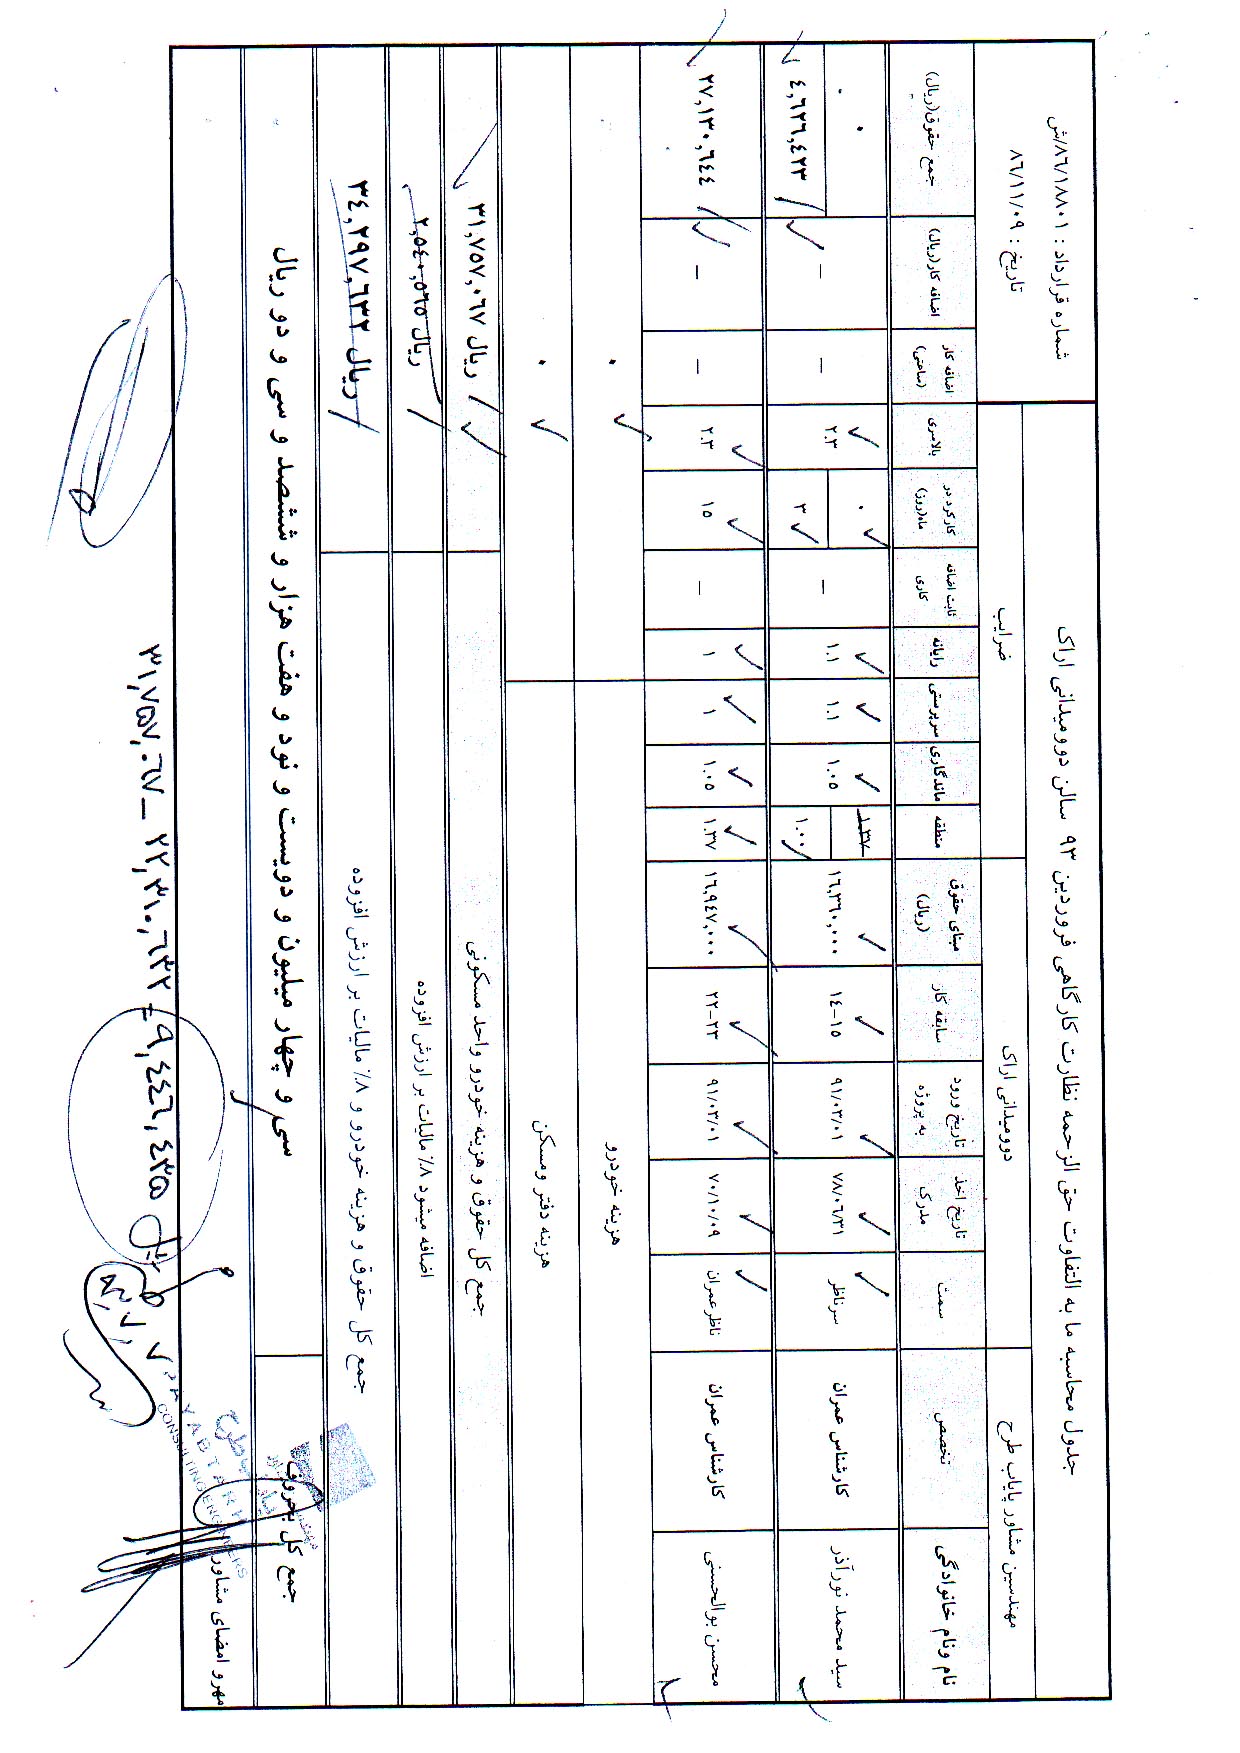 جدول محاسبه ما به التفاوت حق الزحمه نظارت کارگاهی فروردین ۹۳ سالن دوومیدانی اراک
شماره قرارداد : ۸۶/۱۸۸۰۱/ش
تاریخ : ۸۶/۱۱/۰۹
مهندسین مشاور پایاب طرح
دوومیدانی اراک
ضرایب
نام ونام خانوادگی
تخصص
سمت
تاریخ اخذ مدرک
تاریخ ورود به پروژه
سابقه کار
مبنای حقوق (ریال)
منطقه
ماندگاری
سرپرستی
رایانه
ثابت اضافه کاری
کارکرد در ماه(روز)
بالاسری
اضافه کار (ساعتی)
اضافه کار(ریال)
جمع حقوق(ریال)
سید محمد نورآذر
کارشناس عمران
سرناظر
۷۸/۰۶/۳۱
۹۱/۰۳/۰۱
۱۴-۱۵
۱۶,۳۶۰,۰۰۰
۱.۳۷
۱.۰۰
۱.۰۵
۱.۱
۱.۱
–
۰
۳
۲.۳
–
–
۰
۴,۶۲۶,۴۲۳
محسن بوالحسنی
کارشناس عمران
ناظرعمران
۷۰/۱۰/۰۹
۹۱/۰۳/۰۱
۲۲-۲۳
۱۶,۹۴۷,۰۰۰
۱.۳۷
۱.۰۵
۱
۱
–
۱۵
۲.۳
–
–
۲۷,۱۳۰,۶۴۴
هزینه خودرو
۰
هزینه دفتر ومسکن
۰
جمع کل حقوق و هزینه خودرو واحد مسکونی
۳۱,۷۵۷,۰۶۷ ریال
اضافه میشود ۸٪ مالیات بر ارزش افزوده
۲,۵۴۰,۵۶۵ ریال
جمع کل حقوق و هزینه خودرو و ۸٪ مالیات بر ارزش افزوده
۳۴,۲۹۷,۶۳۲ ریال
جمع کل بحروف
سی و چهار میلیون و دویست و نود و هفت هزار و ششصد و سی و دو ریال
مهر و امضای مشاور
CONSULTING ENGINEERS
۳۱,۷۵۷,۰۶۷ – ۲۲,۳۱۰,۶۳۲ = ۹,۴۴۶,۴۳۵ ریال